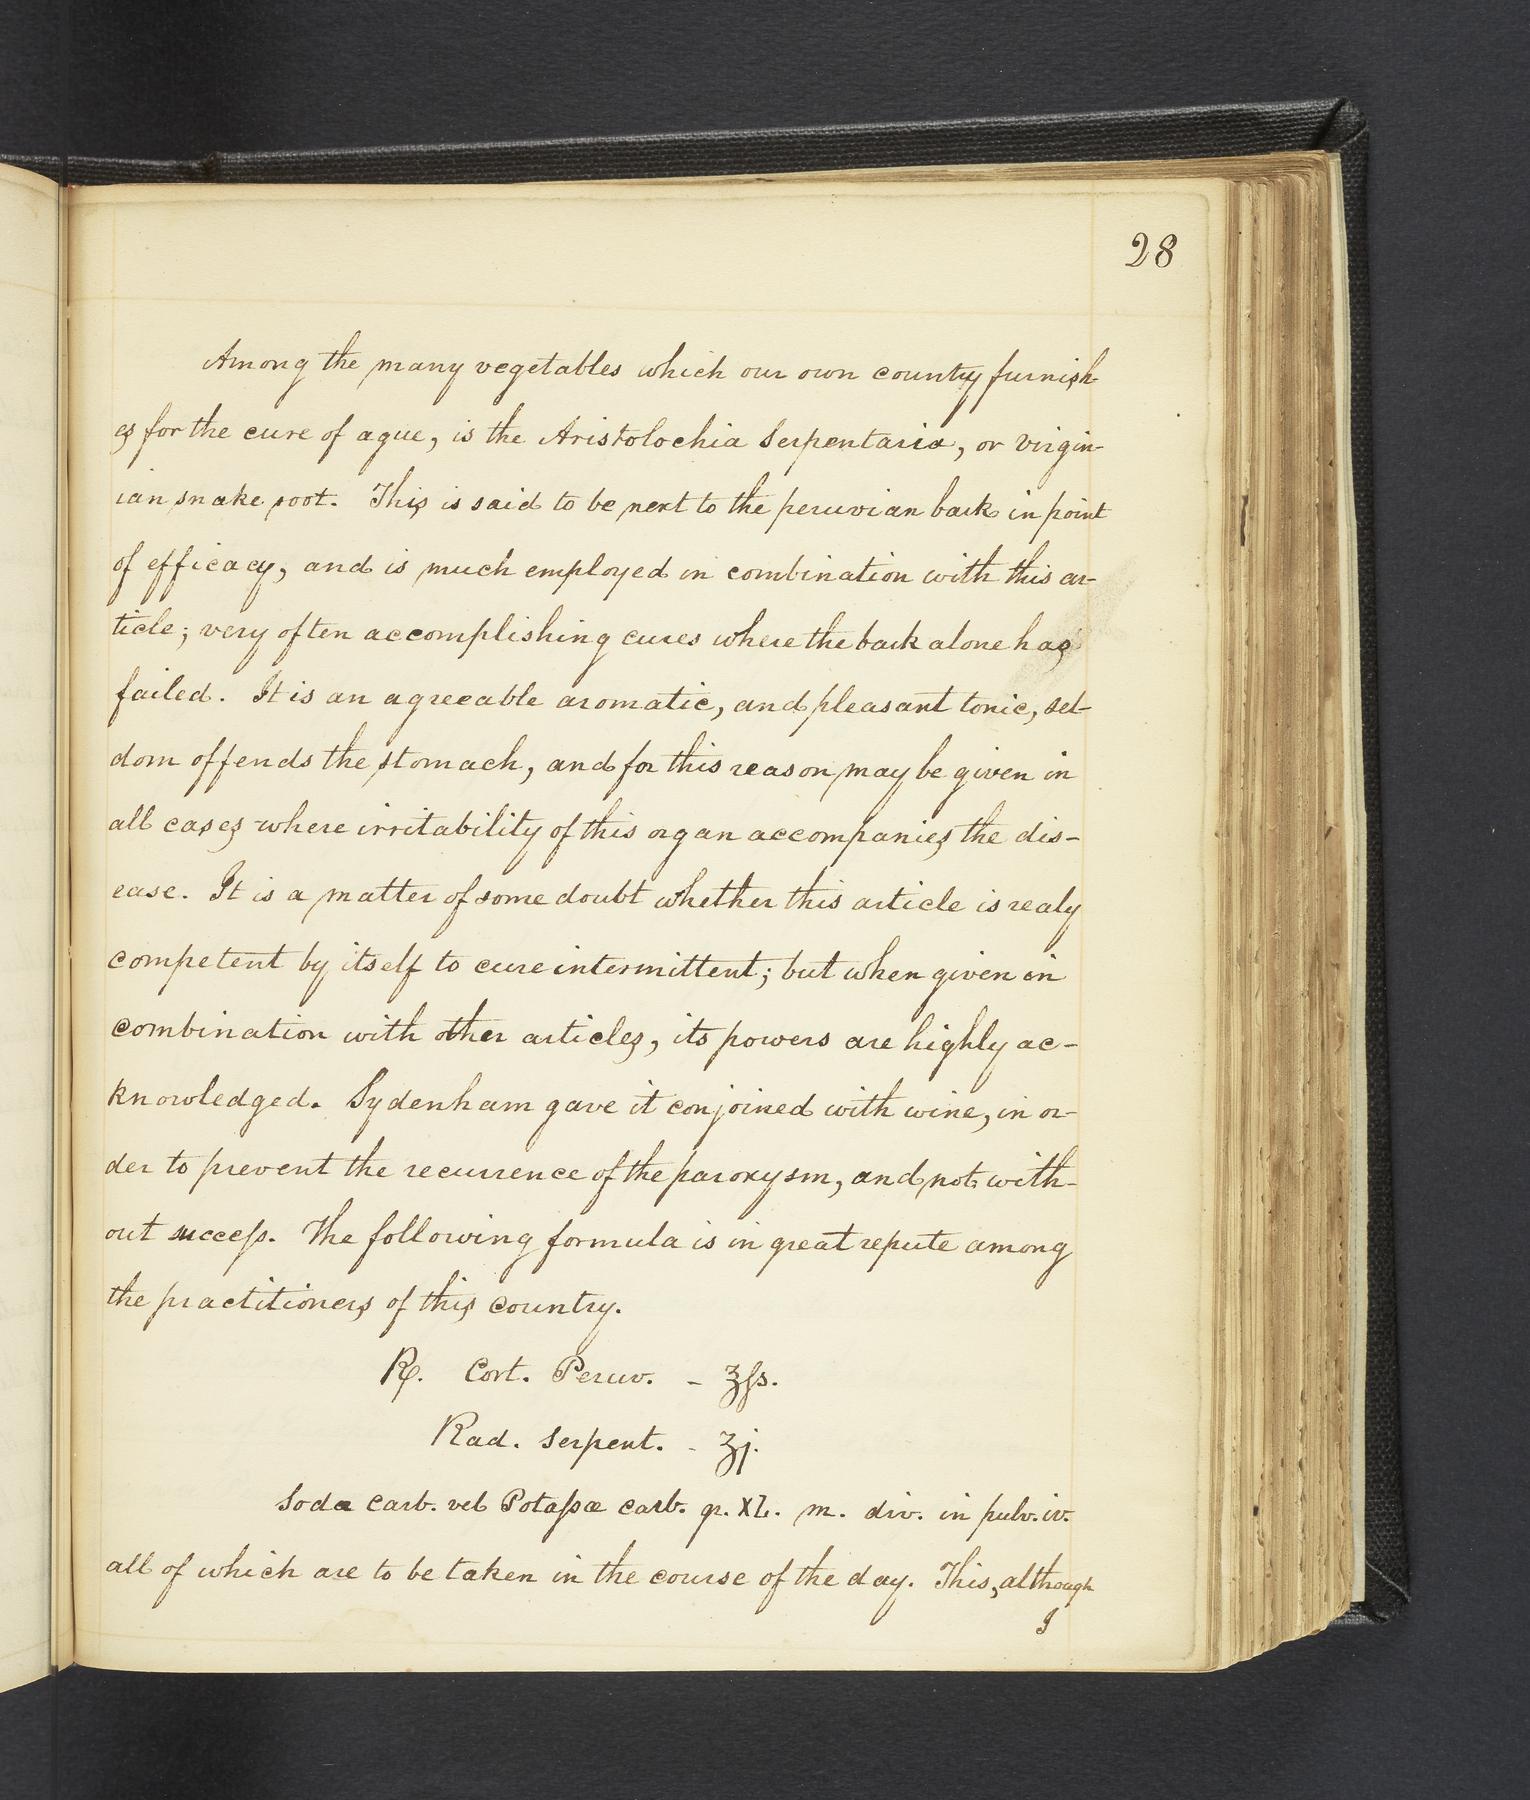 28
Among the many vegetables which our own country furnish-
es for the cure of ague, is the Aristolochia Serpentaria, or virgin-
ian snake root. This is said to be next to the peruvian bark in point
of efficacy, and is much employed in combination with this ar-
ticle; very often accomplishing cures where the bark alone has
failed. It is an agreeable aromatic, and pleasant tonic, sel-
dom offends the stomach, and for this reason may be given in
all cases where irritability of this organ accompanies the dis-
ease. It is a matter of some doubt whether this article is realy
competent by itself to cure intermittent; but when given in
combination with other articles, its powers are highly ac-
knowledged. Sydenham gave it conjoined with wine, in or-
der to prevent the recurrence of the paroxysm, and not with-
out succeſs. The following formula is in great repute among
the practitioners of this country.
℞. Cort. Peruv. - ℥ſs.
Rad. Serpent. - ʒj.
Soda carb. vel Potaſsæ carb. gr. XL. m. div. in pulv. iv.
all of which are to be taken in the course of the day. This, although
I